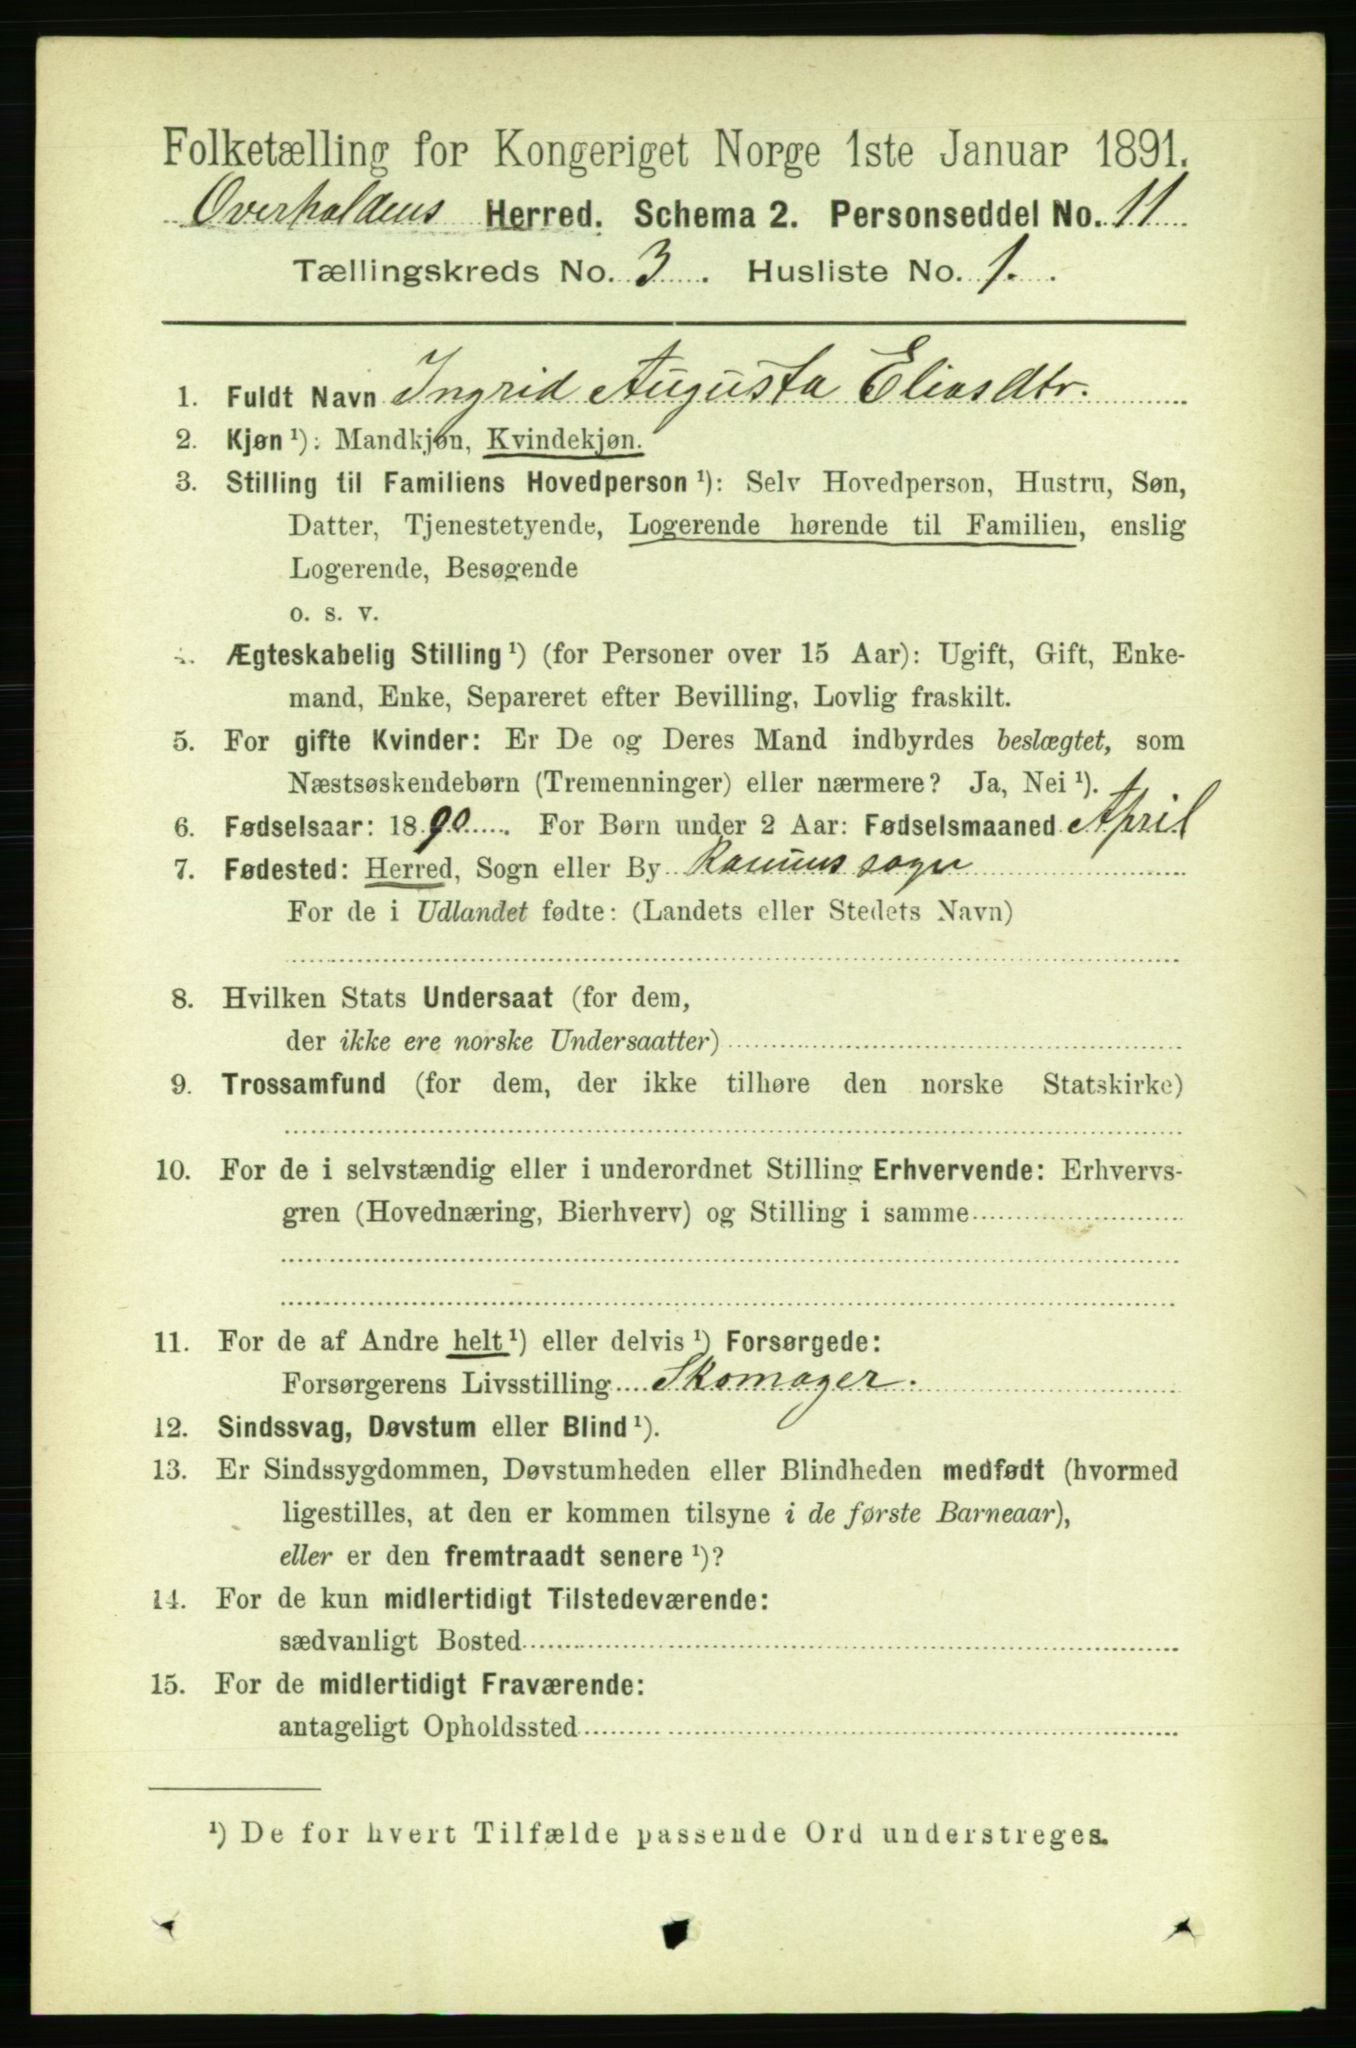 Folketælling for Kongeriget Norge 1ste Januar 1891.
Overhaldens Herred. Schema 2. Personseddel No. 11
Tællingskreds No. 3. Husliste No. 1.
1. Fuldt Navn Ingrid Augusta Eliasdtr.
2. Kjøn ¹): Mandkjøn, Kvindekjøn.
3. Stilling til Familiens Hovedperson ¹): Selv Hovedperson, Hustru, Søn,
Datter, Tjenestetyende, Logerende hørende til Familien, enslig
Logerende, Besøgende
o. s. v.
4. Ægteskabelig Stilling ¹) (for Personer over 15 Aar): Ugift, Gift, Enke-
mand, Enke, Separeret efter Bevilling, Lovlig fraskilt.
5. For gifte Kvinder: Er De og Deres Mand indbyrdes beslægtet, som
Næstsøskendebørn (Tremenninger) eller nærmere? Ja, Nei ¹).
6. Fødselsaar: 1890. For Børn under 2 Aar: Fødselsmaaned April
7. Fødested: Herred, Sogn eller By Ranums sogn
For de i Udlandet fødte: (Landets eller Stedets Navn)
8. Hvilken Stats Undersaat (for dem,
der ikke ere norske Undersaatter)
9. Trossamfund (for dem, der ikke tilhøre den norske Statskirke)
10. For de i selvstændig eller i underordnet Stilling Erhvervende: Erhvervs-
gren (Hovednæring, Bierhverv) og Stilling i samme
11. For de af Andre helt ¹) eller delvis ¹) Forsørgede:
Forsørgerens Livsstilling Skomager.
12. Sindssvag, Døvstum eller Blind ¹).
13. Er Sindssygdommen, Døvstumheden eller Blindheden medfødt (hvormed
ligestilles, at den er kommen tilsyne i de første Barneaar),
eller er den fremtraadt senere ¹)?
14. For de kun midlertidigt Tilstedeværende:
sædvanligt Bosted
15. For de midlertidigt Fraværende:
antageligt Opholdssted
¹) De for hvert Tilfælde passende Ord understreges.